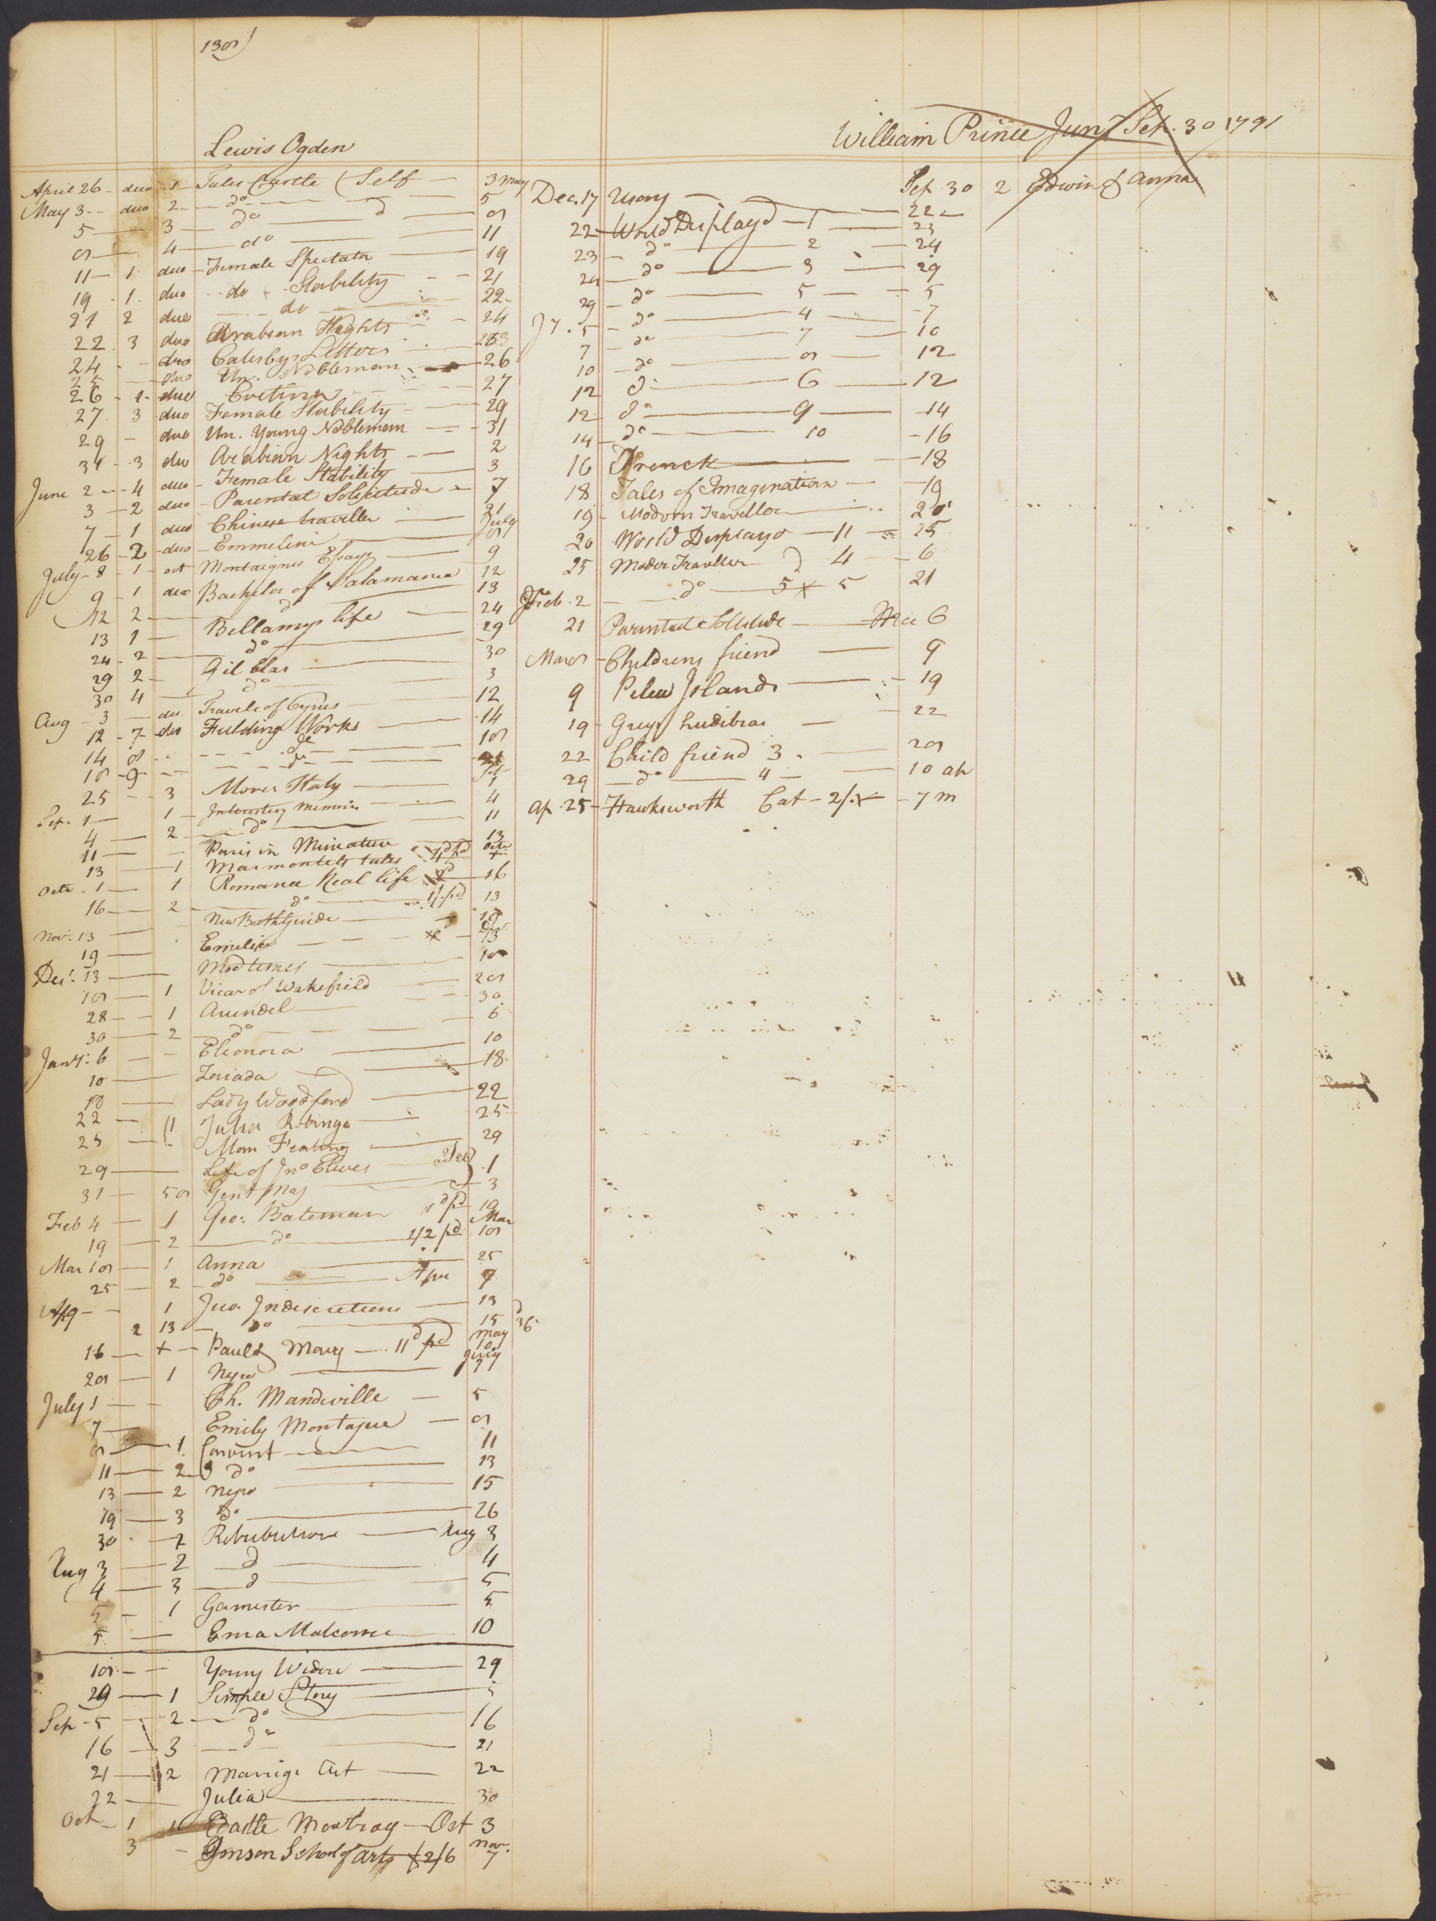 Lewis Ogden
April 26 - duo - 1 - Tales Castle (Self - 3 May
May 3 - duo 2 - do - 5
5 - 3 - do
4 - do - 11
11 - 1 duo - Female Spectator - 19
19 - 1 duo - do - Stability - 21
21 2 duo - do - 22
22 3 duo Arabian Nights - 24
24 - duo Catesbys Letters
duo Un. Nobleman - 26
26 - 1 - duo - 27
27 3 duo Female Stability - 29
29 - duo Un. Young Nobleman - 31
31 - 3 duo Arabian Nights - 2
June 2 - 4 duo - Female Stability - 3
3 - 2 duo - Parental Solicitude - 7
7 - 1 duo Chinese traveller
26 - 2 - duo - Emmeline - July
July - 8 - 1 - oct Montaignes Essays - 9
9 - 1 duo Bachelor of Salamanca 12
12 2 - d - 13
13 1 - Bellamys life - 24
24 - 2 - do - 29
29 2 - Gil Blas - 30
30 4 - do - 3
Aug - 3 - duo Travels of Cyrus - 12
12 - 7 - duo Fielding Works - 14
14 - do
- 9 - do
25 - 3 Mores Italy - 1
Sep. 1 - 1 - Interesting Memoirs - 4
4 - 2 - do - 11
11 - Paris in Miniature - 13
13 - 1 Marmontels tales
Octr. 1 - 1 Romance Real life - 16
16 - 2 - do - 13
Nov. 13 - New Bath Guide - 19
19 - Emilia - 13
Dec. 13 - Mod times
- 1 Vicar of Wakefield
28 - 1 Arundel - 30
30 - 2 - do - 6
Jany. 6 - Eleonora - 10
10 - Zoriada - 18
18 - Lady Woodford - 22
22 - 1 Julia - 25
25 - 29
29 - Life of Jno Elwes
31 - Gent Mag - 3
Feb 4 - 1 Geo: Bateman - 19
19 - 2 - do - 1/2 pd - Mar
Mar - 1 Anna - 25
25 - 2 - do - Apr 9
Ap 9 - 1 Juv. Indiscretions - 13
2 13 - do - 15
16 - + - Pauls Mary - 11d pd May
- 1
July 1 - Ch. Mandeville - 5
7 - Emily Montague
- 1 Convent - 11
11 - 2 do - 13
13 - 2 - 15
19 - 3 do - 26
30 - Retribution - Aug 3
Aug 3 - 2 - d - 4
4 - 3 - d - 5
5 - 1 Gamester - 5
5 - Ema Malcome - 10
Young Widow - 29
29 - 1 Simple Story - 5
Sep - 5 - 2 - do - 16
16 - 3 - do - 21
21 - 2 Marrige Act - 22
22 - Julia - 30
Oct - 1 Castle Mowbray - Oct 3
3 - School of Arts 2/6 Nov. 7
Dec. 17
22 - World Displayd - 1 - 23
23 - do - 2 - 24
24 - do - 3 - 29
29 - do - 5 - 5
5 - do - 4 - 7
7 - do - 7 - 10
10 - do - 12
12 - do - 6 - 12
12 - do - 9 - 14
14 - do - 10 - 16
16 Trenck - 18
18 Tales of Imagination - 19
19 - Modern Traveller - 20
20 World Displayd - 11 - 25
25 Moder Traveller - 4 - 6
Feb. 2 - do - 5 - 21
21 Parental Solicitude - Mar 6
Mar - Childrens friend - 9
9 Pelew Islands - 19
19 - Greys hudibras - 22
22 Child friend 3
29 - do - 4 - 10 ap
Ap. 25 - Hawksworth Cat - 2/ - 7 m
William Prince Junr Sep. 30 1791
Sep. 30 2 Edwin & Anna